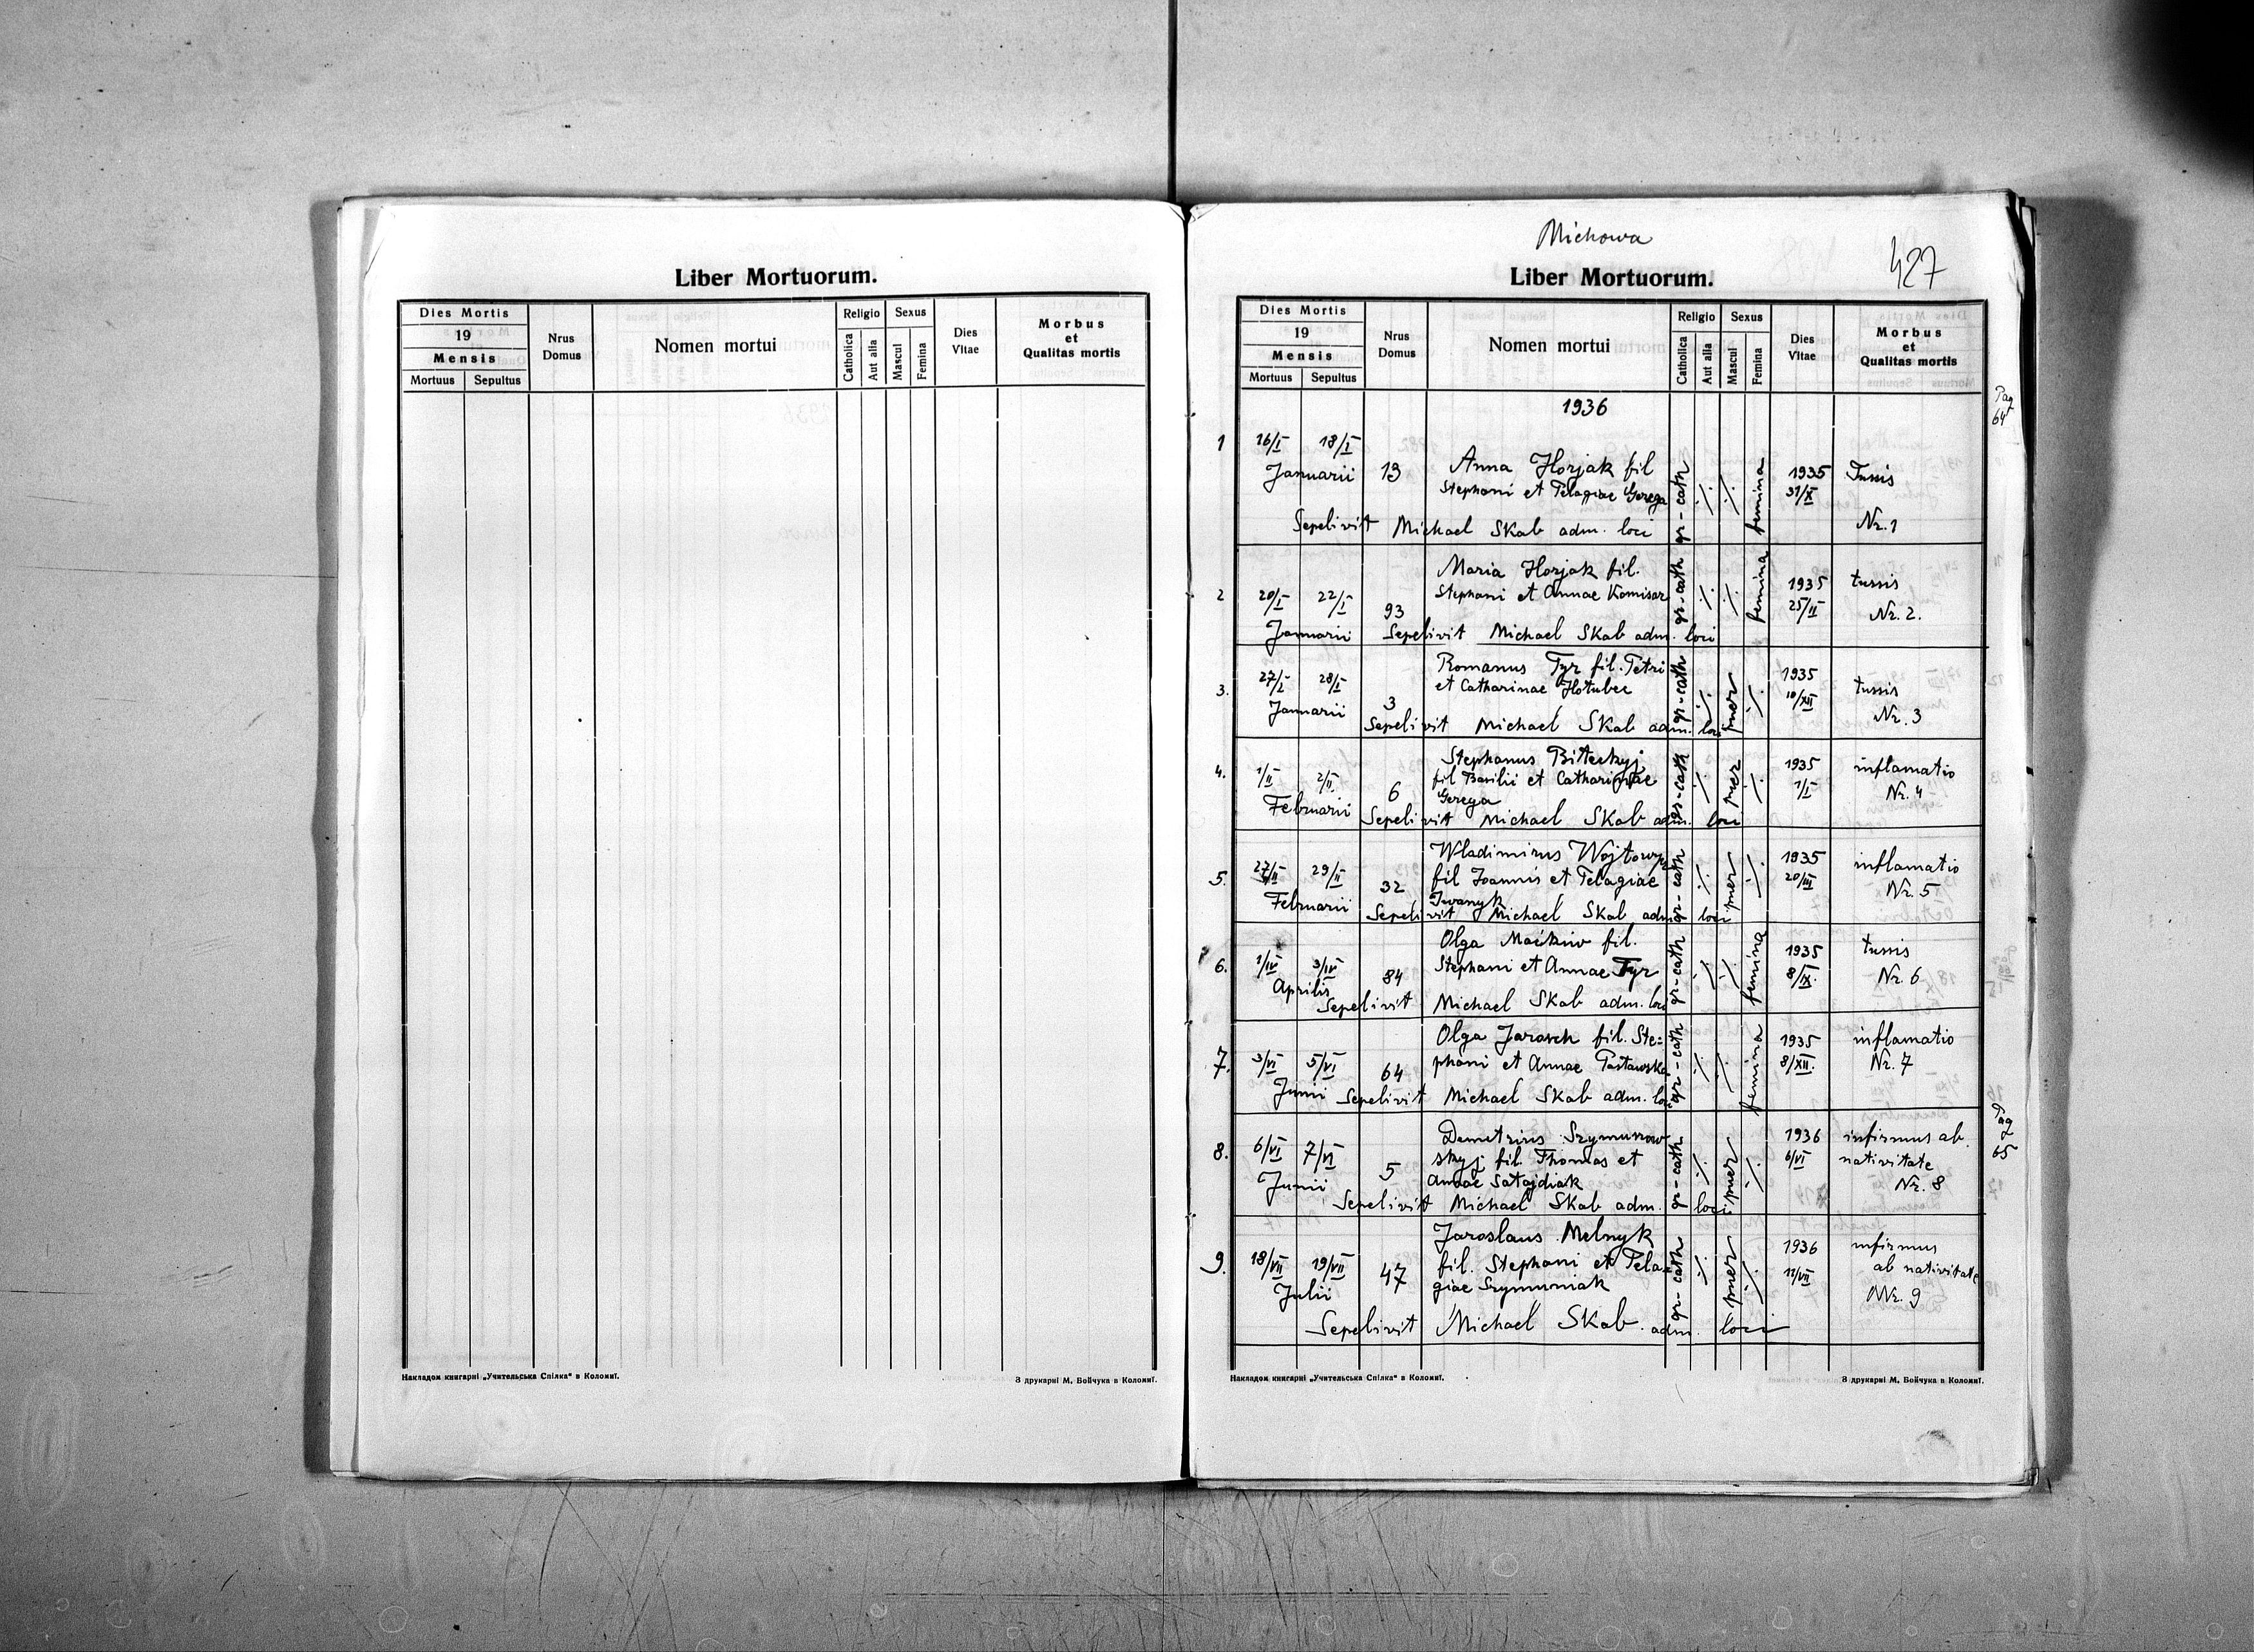 Liber Mortuorum.
Dies Mortis
19
Mensis
Mortuus Sepultus
Nrus Domus
Nomen mortui
Religio
Catholica
Aut alia
Sexus
Mascul
Femina
Dies Vitae
Morbus
et
Qualitas mortis
Накладом книгарні „Учительська Спілка“ в Коломиї.
З друкарні М. Бойчука в Коломиї.
Michowa
427
Liber Mortuorum.
Dies Mortis
19
Mensis
Mortuus Sepultus
Nrus Domus
Nomen mortui
Religio
Catholica
Aut alia
Sexus
Mascul
Femina
Dies Vitae
Morbus
et
Qualitas mortis
1936
Pag 64
1 16/I 18/I
Januarii 13 Anna Horjak fil gr-cath ·/· ·/· femina 1935 Tussis
Stephani et Pelagiae Gerega 31/X
Sepelivit Michael Skab adm. loci Nr. 1
Maria Horjak fil. gr-cath ·/· ·/· femina 1935 tussis
2 20/I 22/I 93 Stephani et Annae Komisar 25/II Nr. 2.
Januarii Sepelivit Michael Skab adm. loci
Romanus Tyr fil. Petri gr-cath ·/· puer ·/· 1935
3. 27/I 28/I 3 et Catharinae 10/XII tussis
Januarii Nr. 3
Sepelivit Michael Skab adm. loci
Stephanus gr-cath ·/· puer ·/· 1935 inflamatio
4. 1/II 2/II 6 fil Basilii et Catharinae 1/I Nr. 4
Februarii Gerega
Sepelivit Michael Skab adm. loci
Wladimirus Wojtowyz gr-cath ·/· puer ·/· 1935 inflamatio
5. 27/II 29/II 32 fil Joannis et Pelagiae 20/III Nr. 5
Februarii Iwanyk
Sepelivit Michael Skab adm. loci
Olga Maćkiw fil. gr-cath ·/· ·/· femina 1935 tussis
6. 1/IV 3/IV 84 Stephani et Annae Tyr 8/IX. Nr. 6
Aprilis
Sepelivit Michael Skab adm. loci
Olga Jarosch fil. Ste= gr-cath ·/· ·/· femina 1935 inflamatio
7. 3/VI 5/VI 64 phani et Annae 8/XII. Nr. 7
Junii Sepelivit Michael Skab adm. loci
Pag 65
Demetrius Szymunow gr-cath ·/· puer ·/· 1936 infirmus ab
8. 6/VI 7/VI 5 skyj fil. Thomas et 6/VI nativitate
Junii Annae Nr. 8
Sepelivit Michael Skab adm. loci
Jaroslaus Melnyk gr-cath ·/· puer ·/· 1936 infirmus
9. 18/VII 19/VII 47 fil. Stephani et Pela= 12/VII ab nativitate
Julii giae Szymuniak Nr. 9
Sepelivit Michael Skab adm. loci
Накладом книгарні „Учительська Спілка“ в Коломиї.
З друкарні М. Бойчука в Коломиї.